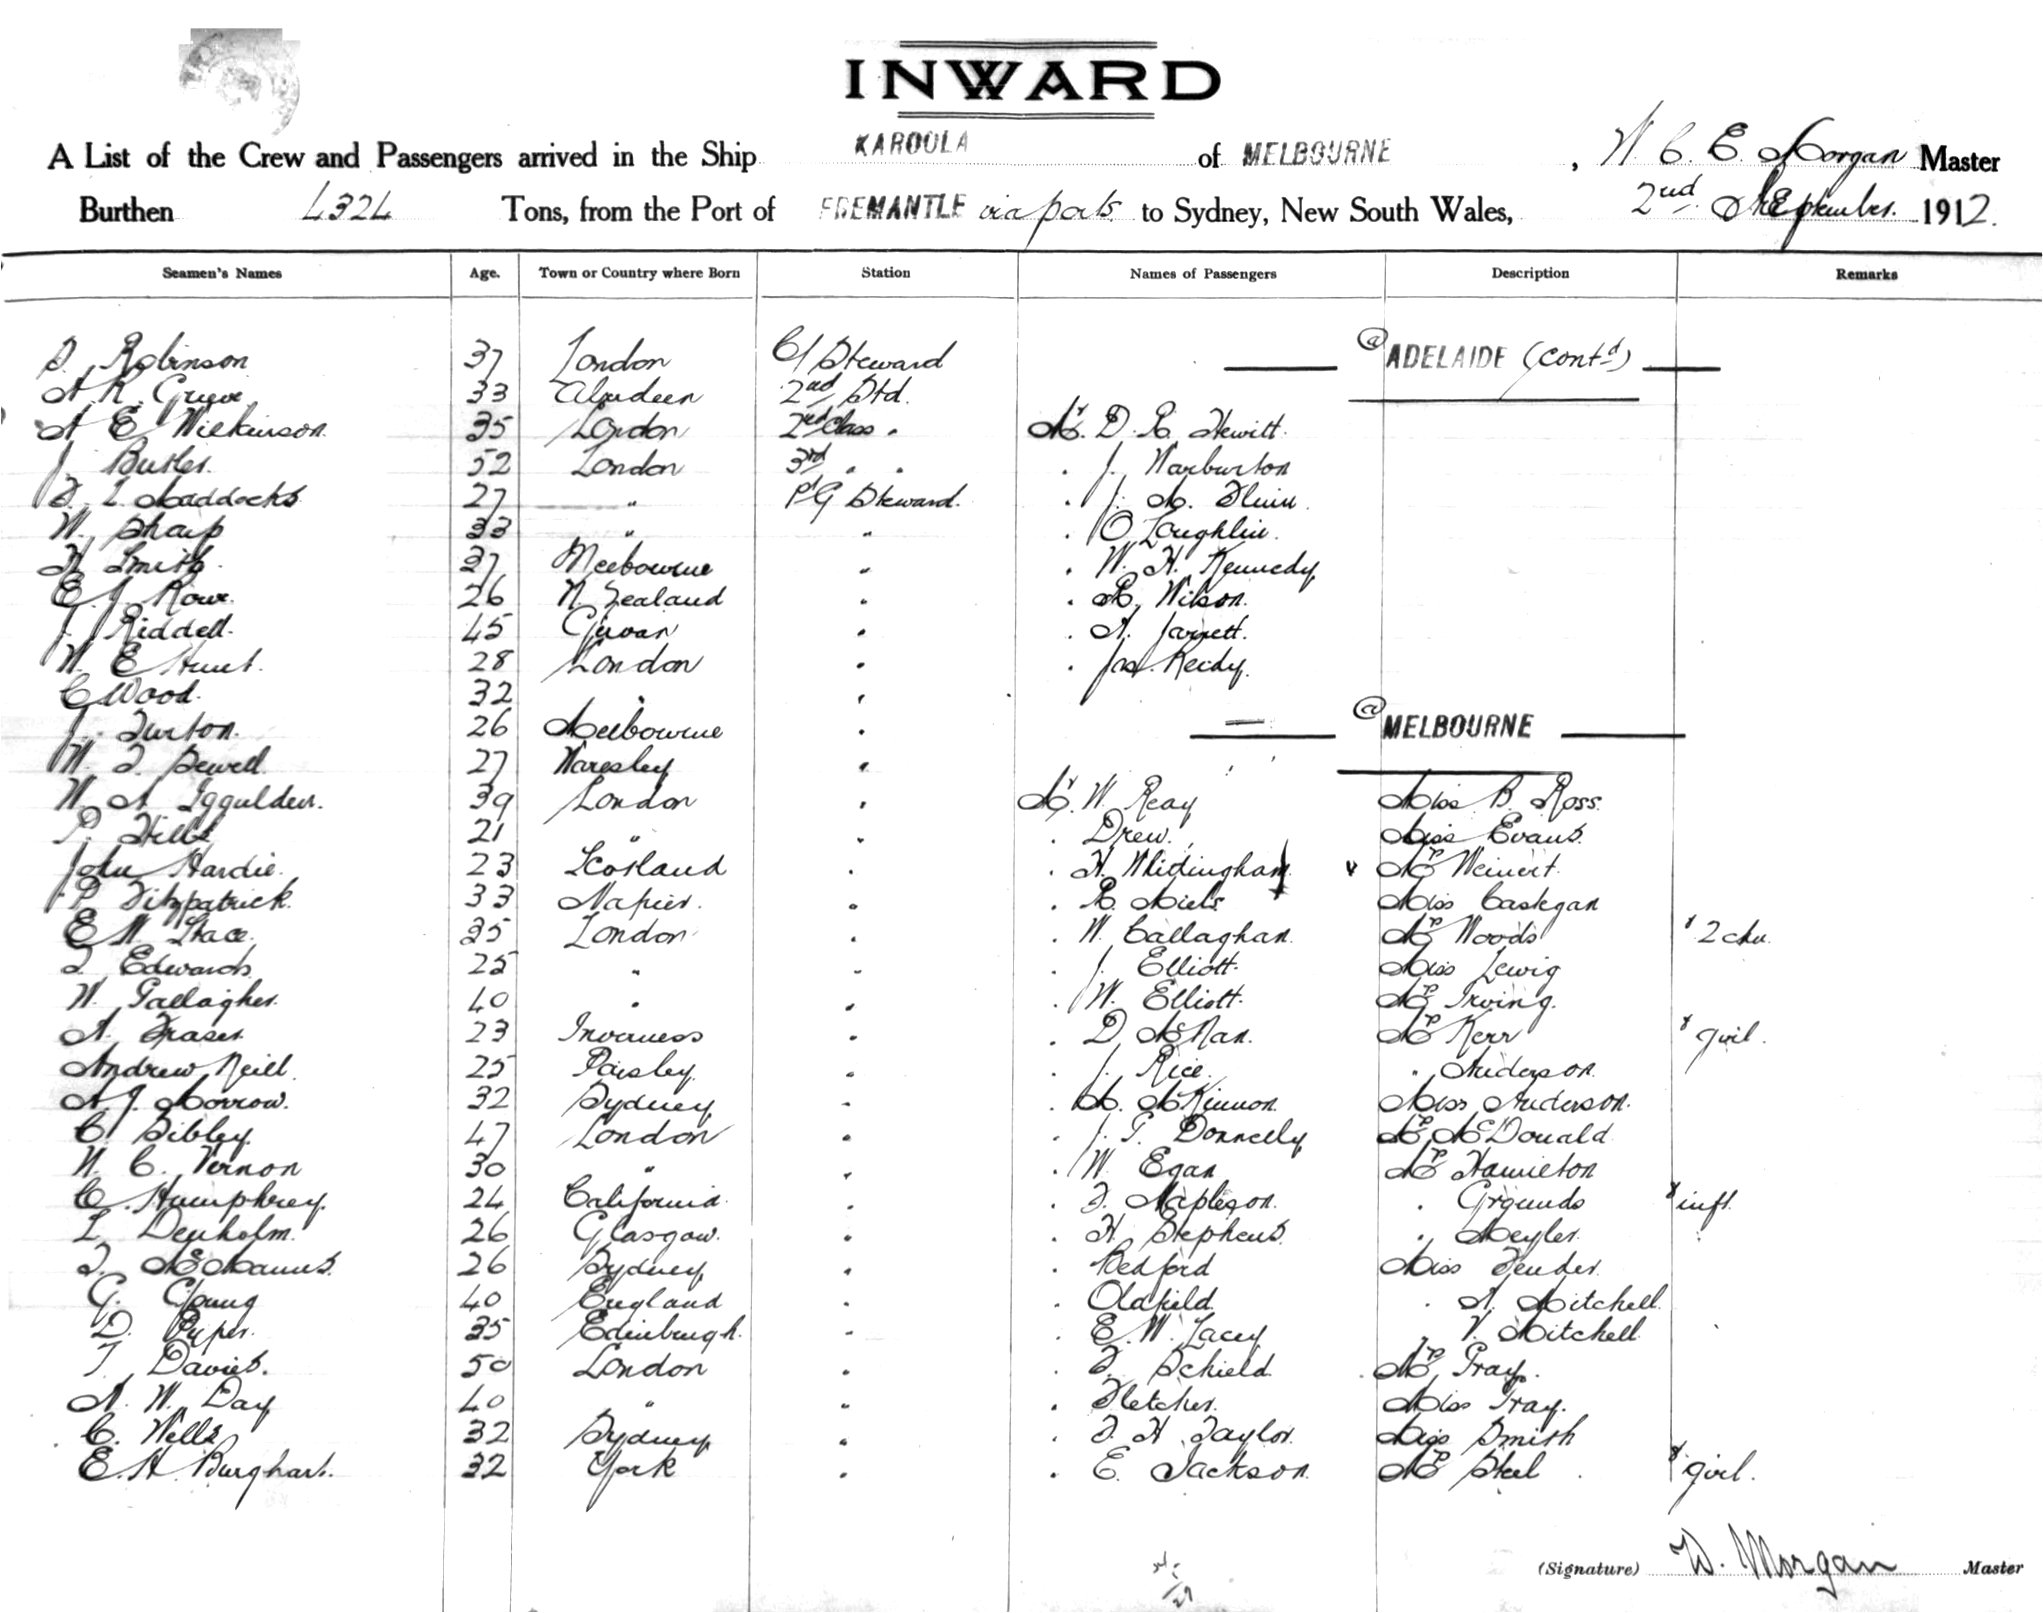 INWARD
A List of the Crew and Passengers arrived in the Ship KAROOLA of MELBOURNE, W. C. E. Morgan Master
Burthen 4324 Tons, from the Port of FREMANTLE via ports to Sydney, New South Wales, 2nd September 1912.
Seamen's Names Age. Town or Country where Born Station Names of Passengers Description Remarks
F. Robinson 37 London C/ Steward @ ADELAIDE (contd)
A. R. Grieve 33 Aberdeen 2nd Std.
A E Wilkinson 35 London 2nd Class " Mr. D. R. Hewitt.
J. Butler. 52 London 3rd " " " J. Warburton
F. L. Maddocks 27 " P/G Steward. " J. M. Flinn.
W. Sharp 33 " " " O'Loughlin.
H. Smith. 27 Melbourne " " W. H. Kennedy
E. J. Rowe. 26 N. Zealand " " R. Wilson.
J. Riddell. 45 Girvan " " A. Jarrett.
W. E Hunt. 28 London " " Jas. Reidy.
C Wood. 32 " "
J. Turton. 26 Melbourne " @ MELBOURNE
W. F. Sewell. 27 Waresley "
W. A Iggulden. 39 London " Mr. W. Reay Miss B. Ross.
P. Hills 21 " " " Drew. Miss Evans.
John Hardie. 23 Scotland " " H. Whidingham Mrs Weinert.
P. Fitzpatrick. 33 Napier. " " R. Miels Miss Caskgan
E W. Stace. 35 London " " W. Callaghan. Mrs Woods & 2 chn.
F. Edwards 25 " " " J. Elliott. Miss Lewig
W. Gallagher. 40 " " " W. Elliott. Mrs Irving.
A. Fraser. 23 Inverness " " D. McNan. Mrs Kerr & girl.
Andrew Neill. 25 Paisley. " " J. Rice. " Anderson.
A. J. Morrow. 32 Sydney " " M. McKinnon. Miss Anderson.
C. Sibley 47 London " " J. G. Donnelly Mrs McDonald
W. C. Vernon 30 " " " W. Egan Mrs Hamilton
C. Humphrey. 24 California. " " F. Mapleson. " Grounds & inft.
L. Denholm. 26 Glasgow. " " H. Stephens. " Meyler.
F. McManus. 26 Sydney " " Bedford Miss Fender.
G. Young 40 England " " Oldfield " A. Mitchell.
D. Pyper. 35 Edinburgh. " " E. W. Lacey " V. Mitchell
T. Davies. 50 London " " F. Schield. Mrs Gray.
A. W. Day 40 " " " Fletcher. Miss Gray.
C. Wells 32 Sydney " " F. H. Taylor. Miss Smith
E. H. Burghart. 32 York " " E. Jackson. Mrs Steel & girl.
(Signature) W. Morgan Master